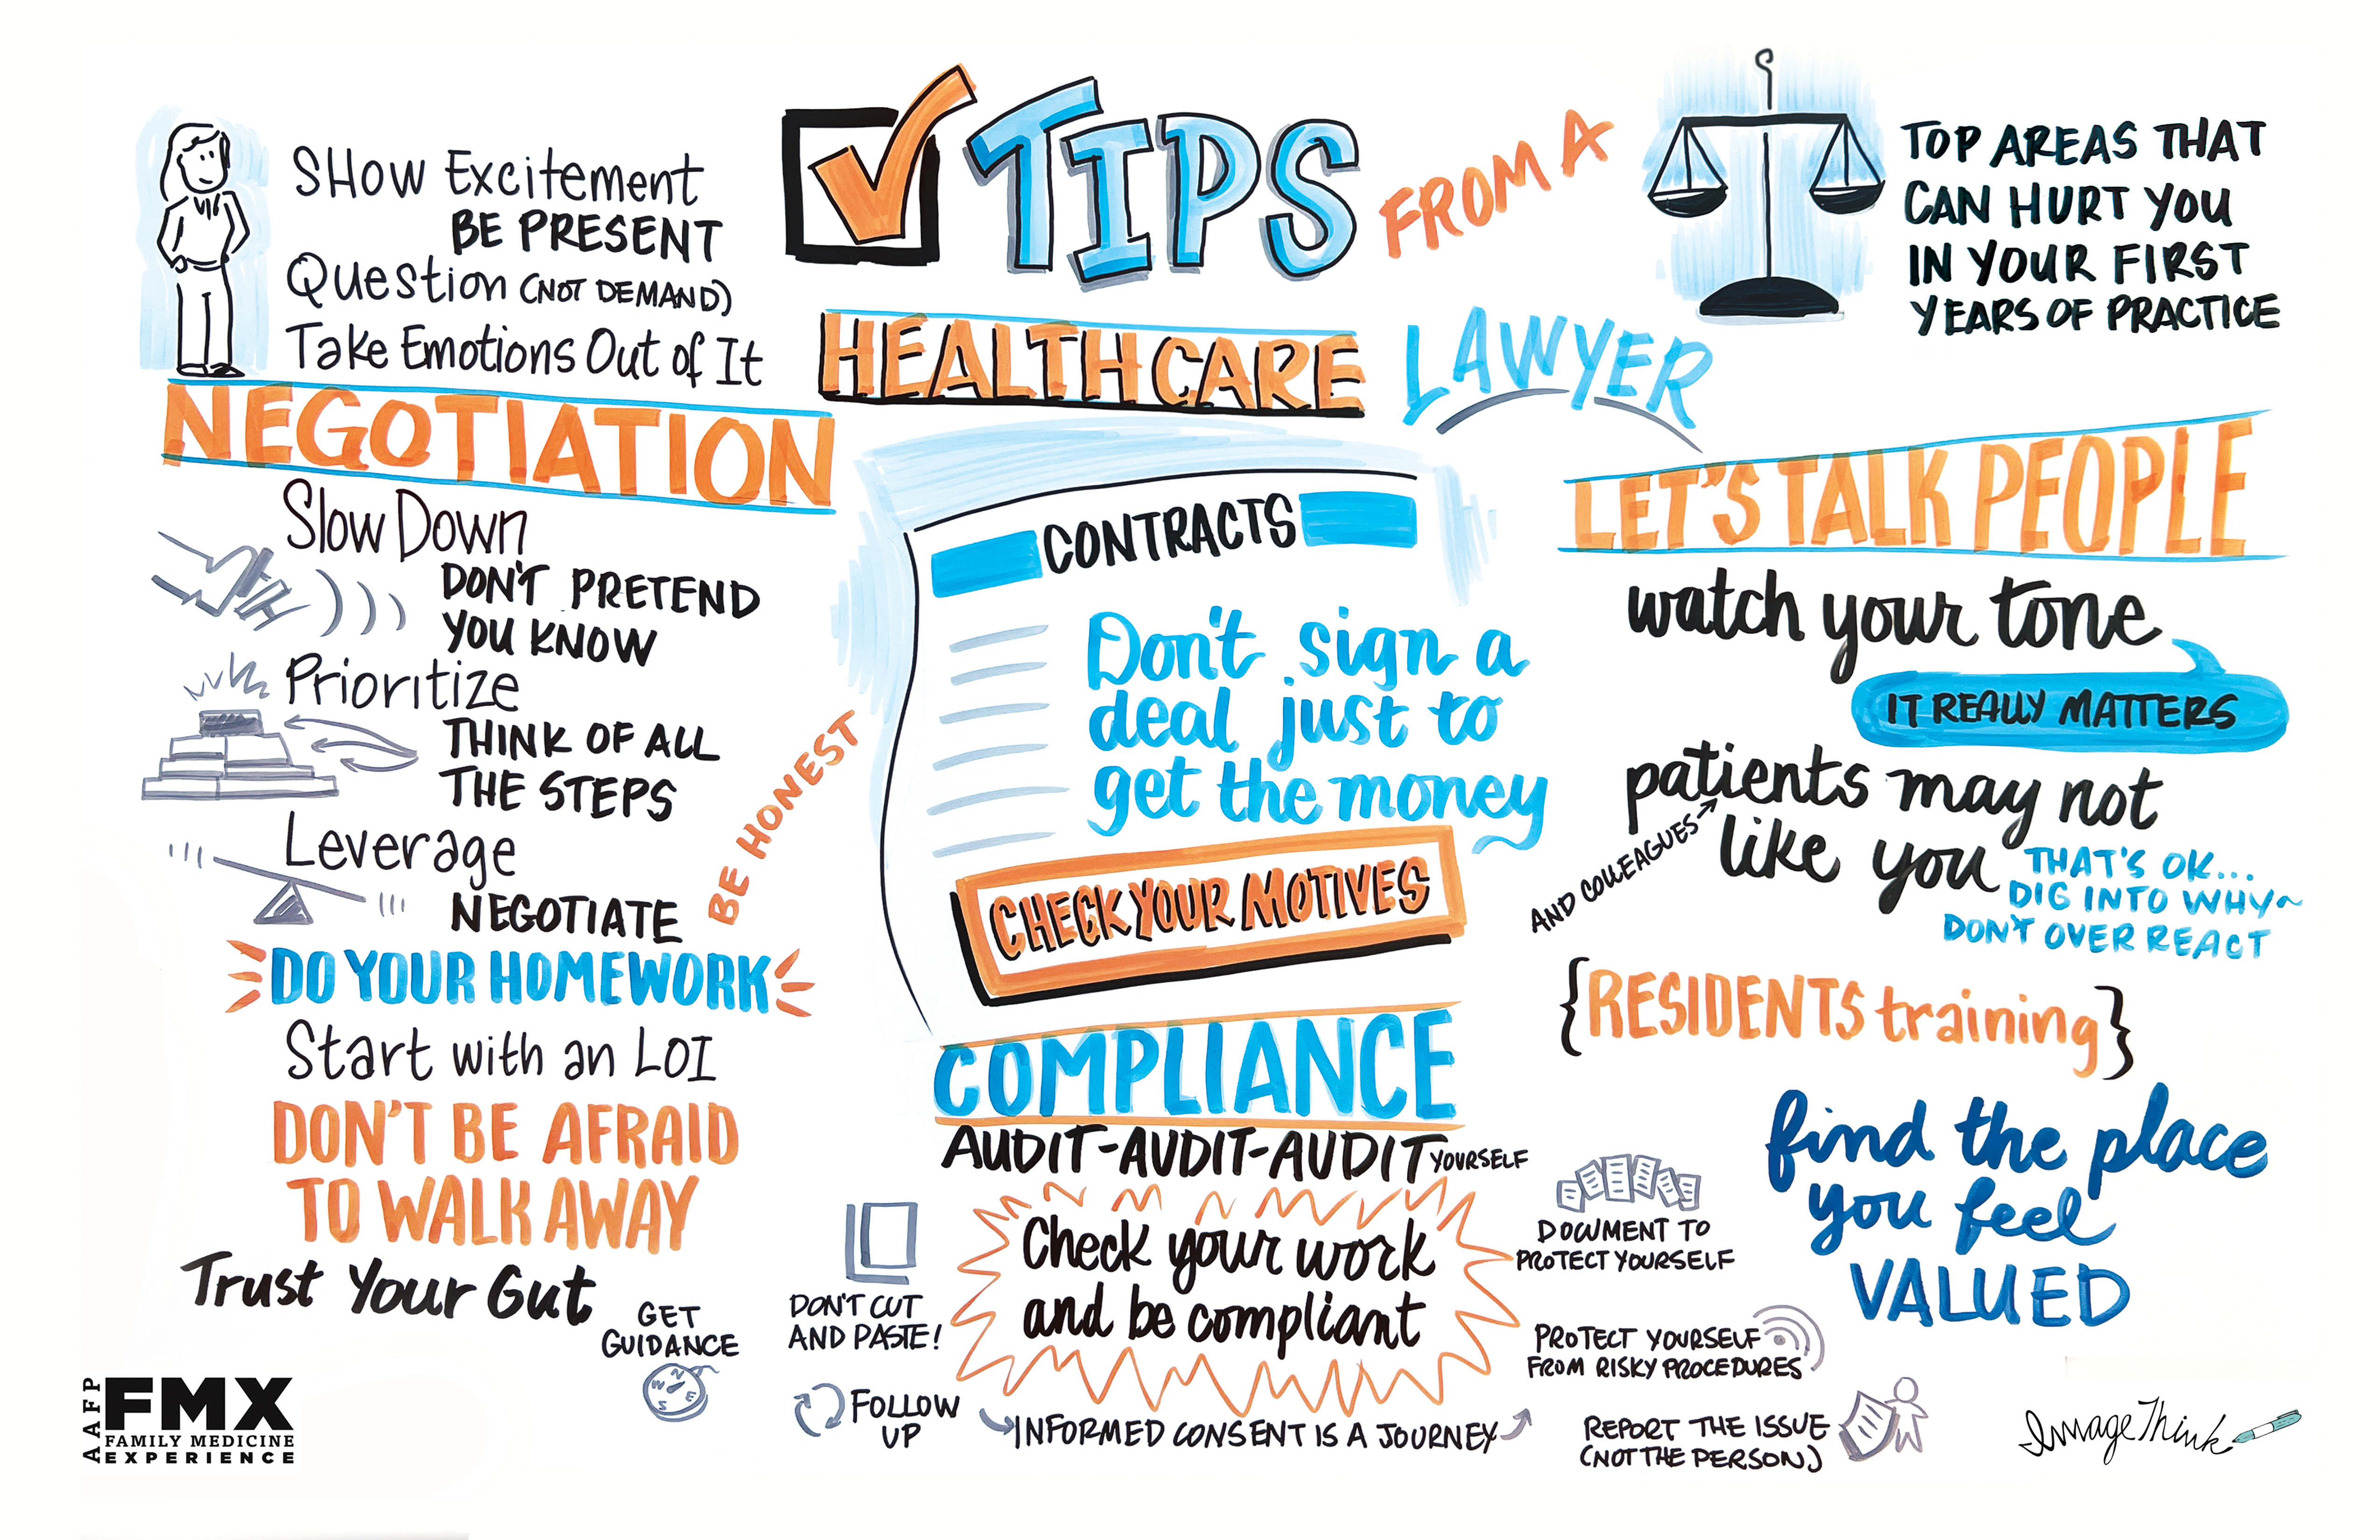 TIPS
FROM A
HEALTHCARE
LAWYER
TOP AREAS THAT
CAN HURT YOU
IN YOUR FIRST
YEARS OF PRACTICE
SHOW Excitement
BE PRESENT
Question (NOT DEMAND)
Take Emotions Out of It
NEGOTIATION
Slow Down
DON'T PRETEND
YOU KNOW
Prioritize
THINK OF ALL
THE STEPS
Leverage
NEGOTIATE
BE HONEST
DO YOUR HOMEWORK
Start with an LOI
DON'T BE AFRAID
TO WALK AWAY
Trust Your Gut
GET
GUIDANCE
N
E
S
W
CONTRACTS
Don't sign a
deal just to
get the money
CHECK YOUR MOTIVES
COMPLIANCE
AUDIT-AUDIT-AUDIT YOURSELF
Check your work
and be compliant
DON'T CUT
AND PASTE!
FOLLOW
UP
INFORMED CONSENT IS A JOURNEY
DOCUMENT TO
PROTECT YOURSELF
PROTECT YOURSELF
FROM RISKY PROCEDURES
REPORT THE ISSUE
(NOT THE PERSON)
LET'S TALK PEOPLE
watch your tone
IT REALLY MATTERS
patients may not
like you
AND COLLEAGUES
THAT'S OK...
DIG INTO WHY~
DON'T OVER REACT
{RESIDENTS training}
find the place
you feel
VALUED
AAFP
FMX
FAMILY MEDICINE
EXPERIENCE
ImageThink